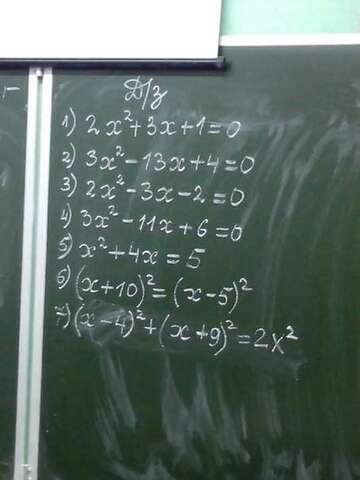 Д/з
1) 2x²+3x+1=0
2) 3x²-13x+4=0
3) 2x²-3x-2=0
4) 3x²-11x+6=0
5) x²+4x=5
6) (x+10)²=(x-5)²
7) (x-4)²+(x+9)²=2x²